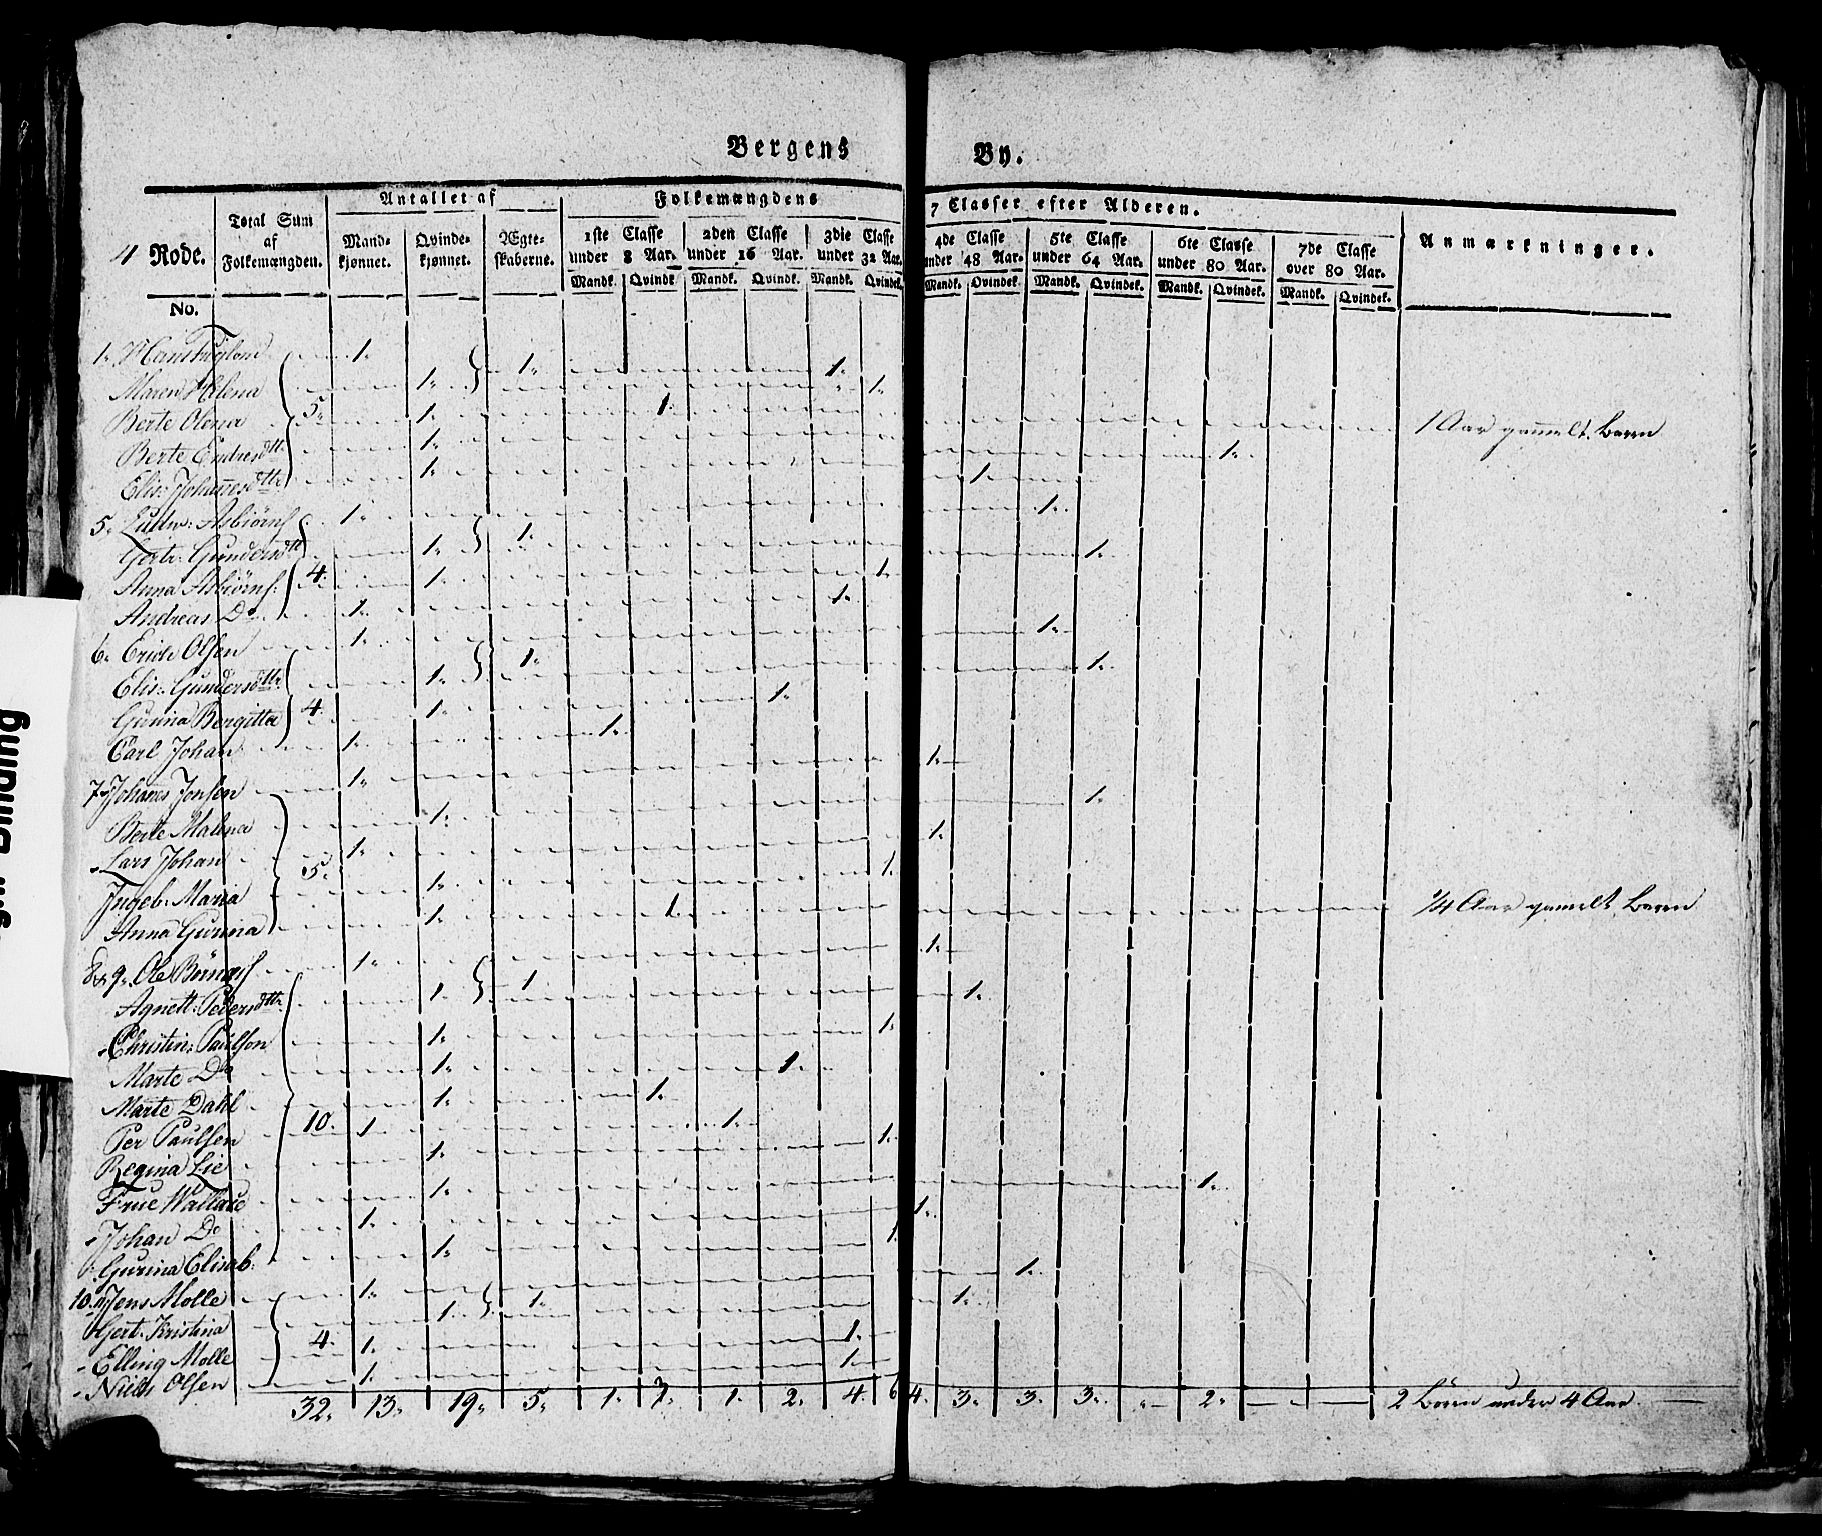 Bergens By.
Antallet af Folkemængdens 7 Classer efter Alderen.
4 Rode. Total Sum af Folkemængden. Mandkjønnet. Qvindekjønnet. Ægteskaberne. 1ste Classe under 8 Aar. 2den Classe under 16 Aar. 3die Classe under 32 Aar. 4de Classe under 48 Aar. 5te Classe under 64 Aar. 6te Classe under 80 Aar. 7de Classe over 80 Aar. Anmærkninger.
Mandk. Qvindk Mandk. Qvindk. Mandk. Qvindek. Mandk. Qvindek Mandk. Qvindek. Mandk. Qvindek. Mandk. Qvindek.
No.
1. Hans 1. 1. 1.
Maren Helena 1. 1.
Berte Olena 5. 1. 1. 1 Aar gamelt Barn
Berte Endresdttr 1. 1.
Elis: Johanesdttr 1. 1.
5. Ludw: Asbiörns 1. 1. 1.
Gertr: Gundersdtt 1. 1.
Anna Asbiörns: 4. 1. 1.
Andreas Do 1. 1.
6. Erich Olsen 1. 1. 1.
Elis: Gundersdttr 1. 1.
Gurina Bergitta 4. 1. 1.
Carl Johan 1. 1.
7. Johanes Jonsen 1. 1.
Berte Malena 1. 1.
Lars Johan 5. 1. 1.
Ingeb: Maria 1. 1.
Anna Gurina 1. 1. 1/4 Aar gamelt Barn
8 & 9. Ole 1. 1 1.
Agnett: Pedersdttr 1. 1.
Christin: Paulson 1. 1.
Marte Do 1. 1.
Marte Dahl 1. 1.
Per Paulsen 10. 1. 1.
Regina Lie 1. 1.
Frue Wallace 1. 1.
Johan Do 1. 1.
Gurina Elisab: 1. 1.
10. Jens Molle 1. 1. 1.
Gert: Kristina 1. 1.
Elling Molle 4. 1. 1.
Niels Olsen 1. 1.
32. 13. 19. 5. 1. 1. 2. 4. 6 4. 3. 3. 3. 2. 2 Börn under 4 Aar